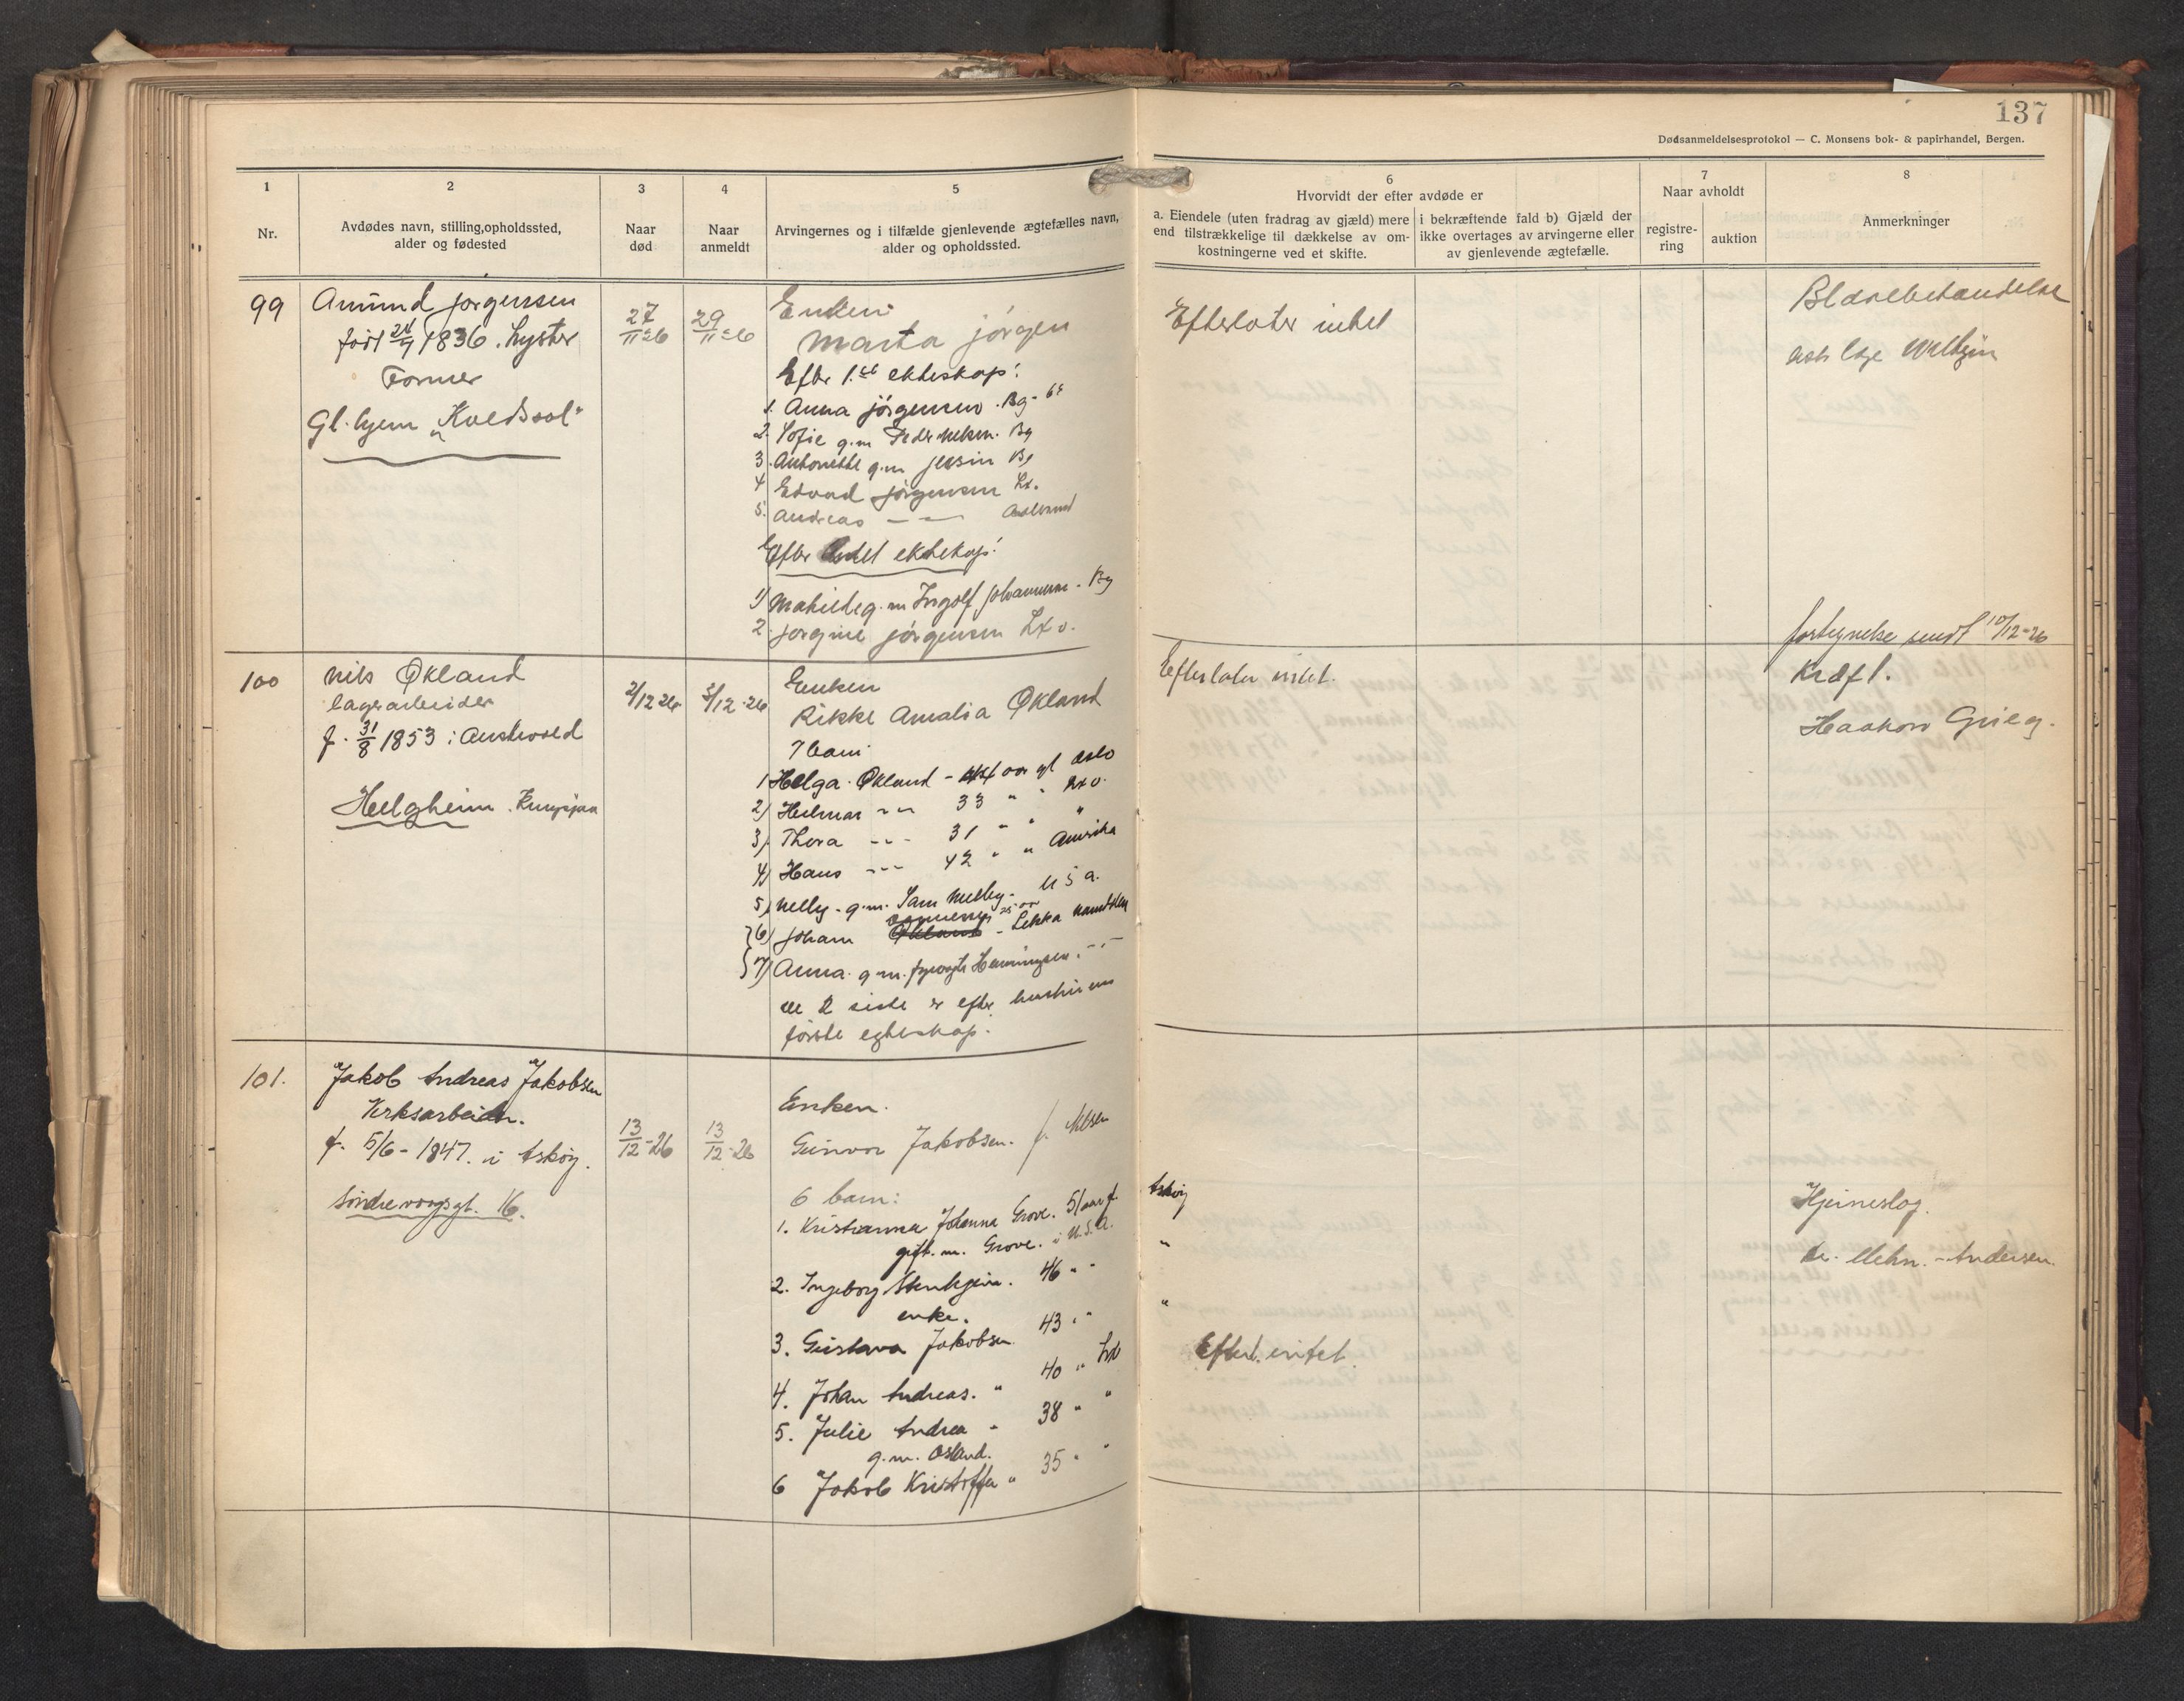 137
Dødsanmeldelsesprotokol — C. Monsens bok- & papirhandel, Bergen.
1
Nr.
2
Avdødes navn, stilling, opholdssted,
alder og fødested
3
Naar
død
4
Naar
anmeldt
5
Arvingernes og i tilfælde gjenlevende ægtefælles navn,
alder og opholdssted.
6
Hvorvidt der efter avdøde er
a. Eiendele (uten fradrag av gjæld) mere
end tilstrækkelige til dækkelse av om-
kostningerne ved et skifte.
i bekræftende fald b) Gjæld der
ikke overtages av arvingerne eller
av gjenlevende ægtefælle.
7
Naar avholdt
registre-
ring
auktion
8
Anmerkninger
99
Amund Jørgensen
født 1836. Lyster
Former
Gl. hjem "Kveldssol"
27/11-26
29/11-26
Enken:
Marta Jørgen
Efter 1.ste ekteskap:
1. Anna Jørgensen. Bg-
2. Sofie g.m Peder Nilsen. Bg
3. Antonette g.m Jensin Bg
4 Edvard Jørgensen Lx.
5. Andreas — — Aalesund
Efter Andet ektekap!
1) Mathilde g.m Ingolf Johannesen - Bg
2. Jørgine Jørgensen Lxv.
Efterlater intet
Blærebetændelse
fortegnelse sendt 10/12-26
100
Nils Økland
lagerarbeider
f. 31/8 1853 i Austevold
Helgheim.
2/12 26.
3/12-26
Enken
Rikke Amalia Økland
7 barn
1 Helga Økland - 44 aar gl Oslo
2) Helmar -"- 33 " " Lxv.
3) Thora -"- 31 " " "
4) Hans -"- 42 " " Amerika
5) Nelly - g.m. Sam Melby - U S A.
6) Johan Økland - Lekka Namdalen
7) Anna g.m. fyrvogter Henningsen. - -
de 2 siste er efter hustruens
første egteskap.
Efterlater intet.
Kræft.
Haakon Grieg.
101.
Jakob Andreas Jakobsen
Verksarbeider.
f. 5/6-1847. i Askøy.
Søndre vaagsgt. 16.
13/12-26
13/12-26
Enken.
Gunvor Jakobsen. f. Nilsen
6 barn:
1. Kristianna Johanna Grove. 51 aar f. Askøy
gift. m. Grove. i U.S.A.
2. Ingeborg Stenhjem. 46 " " "
enke.
3. Gustava Jakobsen 43 " " "
4. Johan Andreas. " 40 " Lxv
5. Julie Andrea " 38 " "
g.m. Osland.
6 Jakob Kristoffer " 35 " "
Efterl. intet.
Hjerneslag.
dr. Mehn.-Andersen.